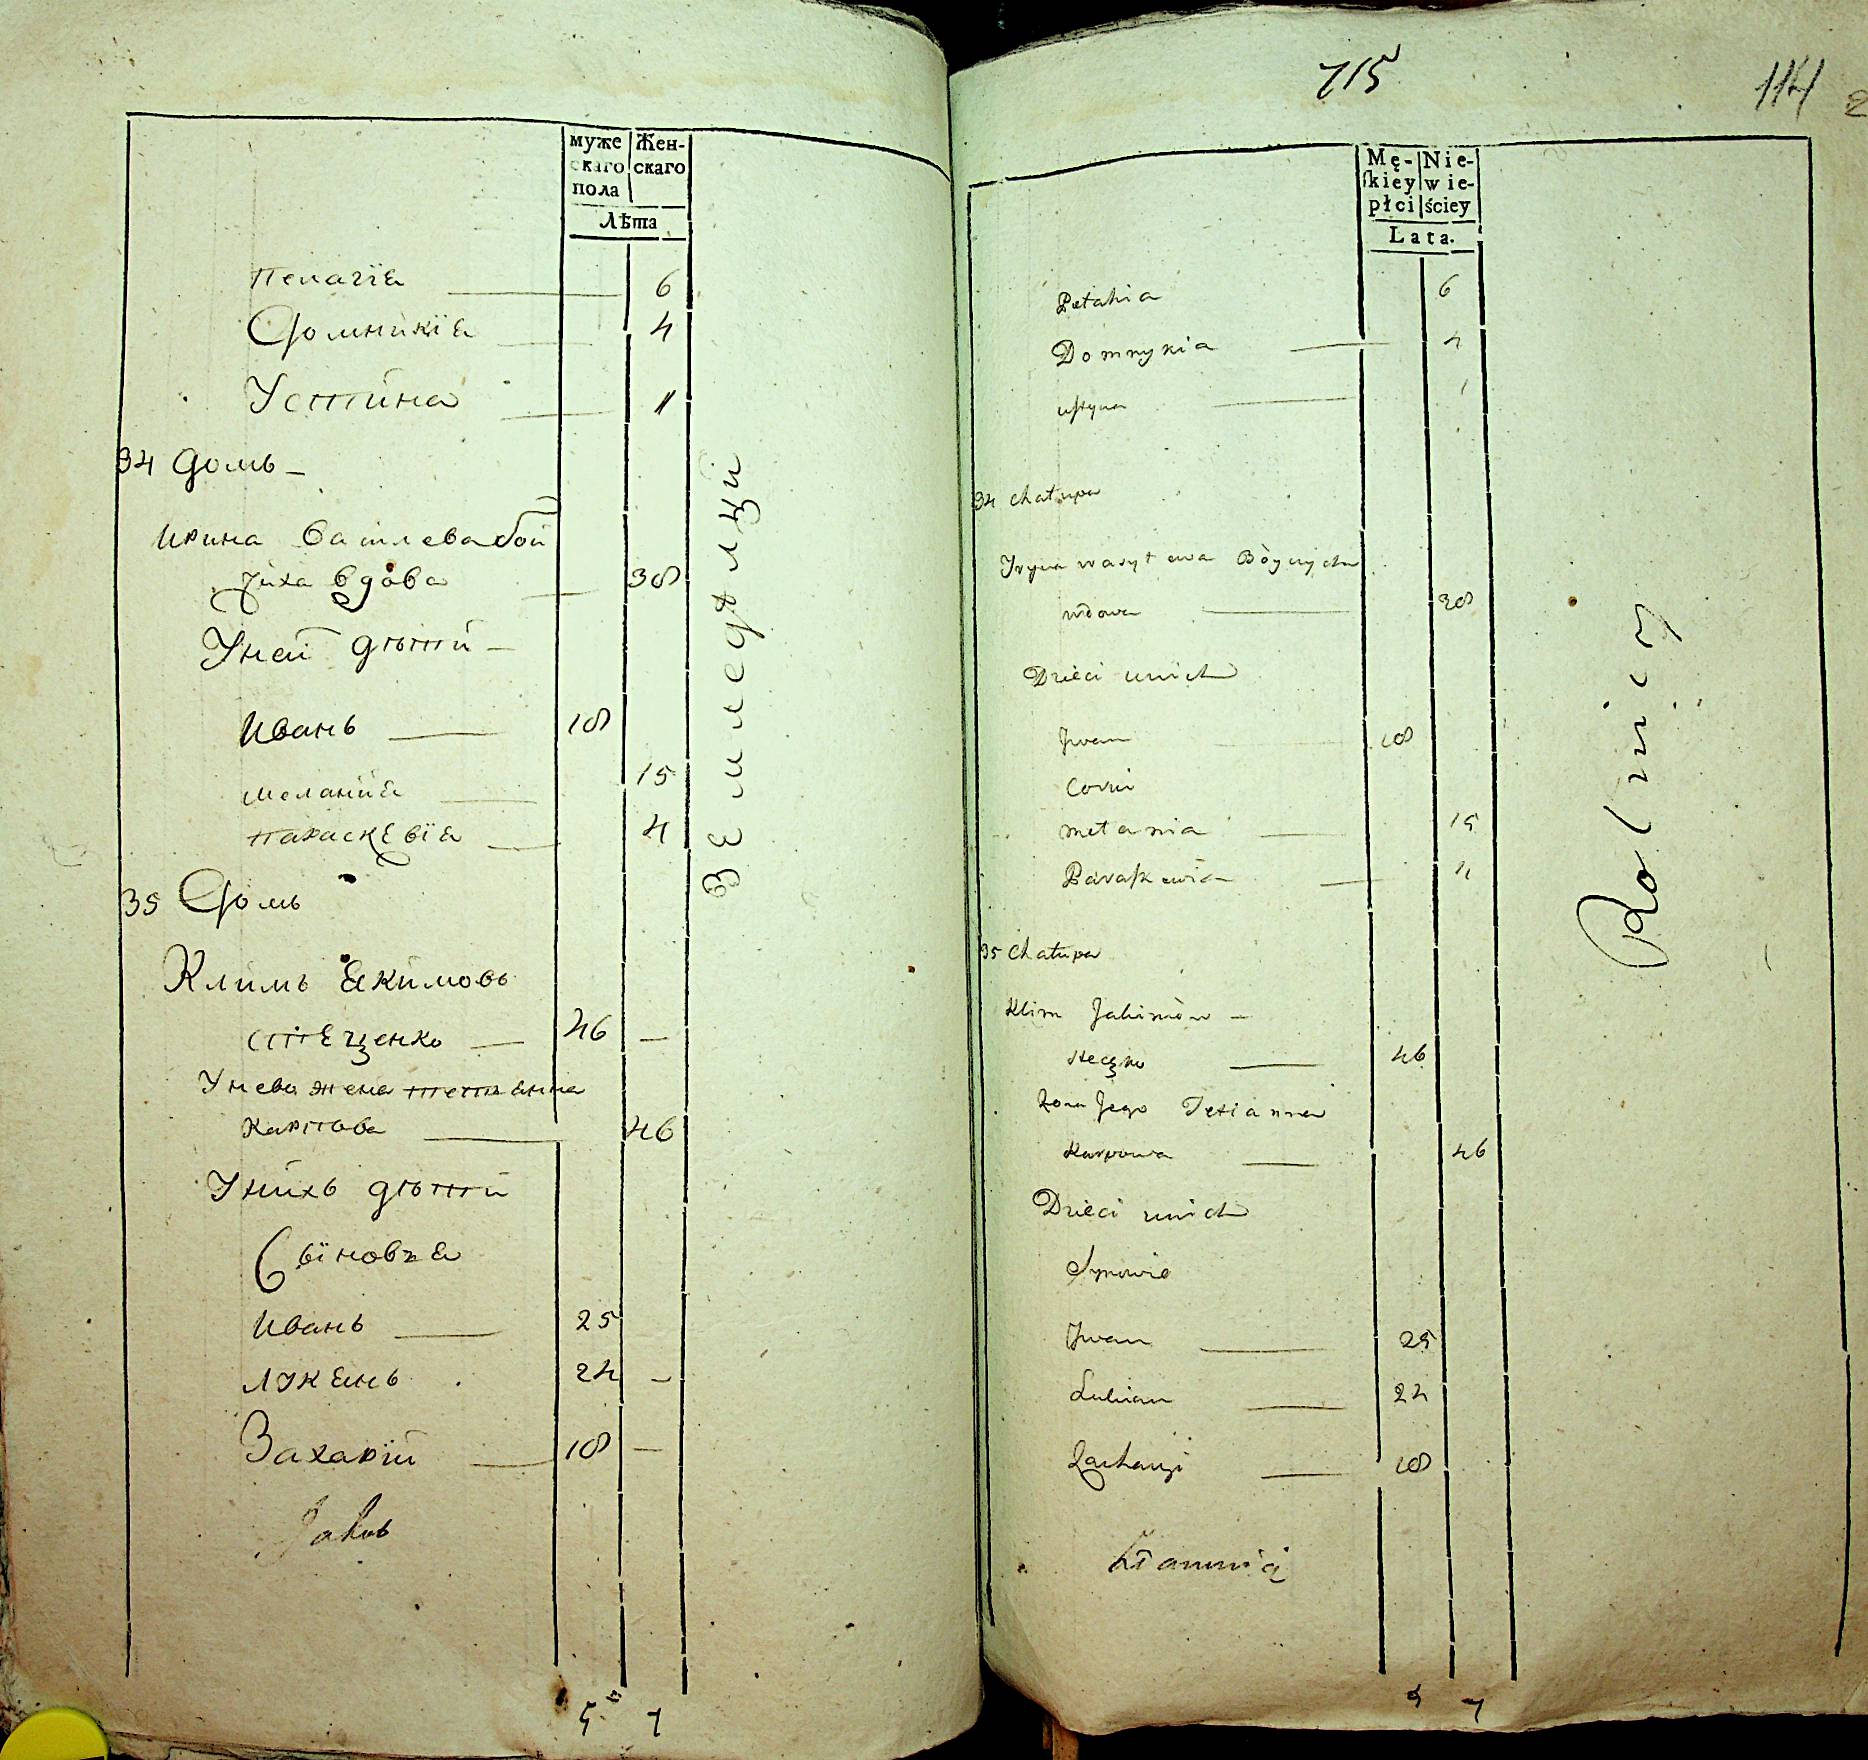 муже
скаго
пола
Жен-
скаго
Лѣта
Пелагїя 6
Домникїя 4
Устина 1
34 Домъ
Ирина Василева Бой
чиха вдова 38
У ней дѣти
Иванъ 18
Меланїя 15
Параскевїя 4
35 Домъ
Климъ Якимовъ
Стеценко 46 —
У него жена Тетянна
Карпова 46
У нихъ дѣти
Сыновья
Иванъ 25
Лукянъ 24 —
Захарїй 18 —
Jakub
5 7
Земледѣлци
715
114
Mę-
ſkiey
płci
Nie-
wie-
ściey
Lata.
Pelahia 6
Domnykia 4
uſtyna 1
34 Chałupa
Iryna wasylewa Bóyczycha
wdowa 38
Dzieci u nich
Jwan 18
Corki
Melania 15
Paraſkewia 4
35 Chałupa
Klim Jakimów
Steczko 46
Żona Jego Tetianna
Karpowa 46
Dzieci u nich
Synowie
Jwan 25
Lukian 24
Zacharyi 18
5 7
Rolnicy